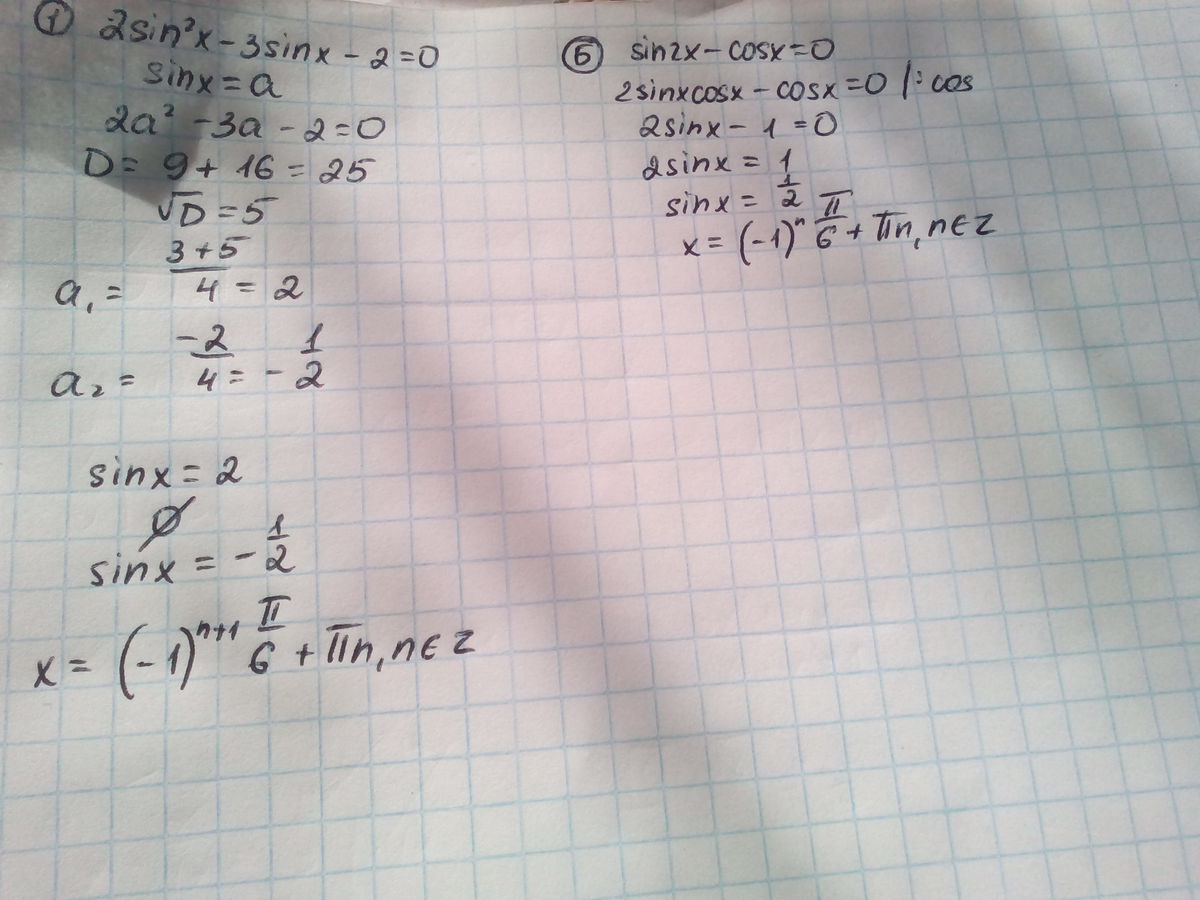 ① 2sin²x - 3sinx - 2 = 0
sinx = a
2a² - 3a - 2 = 0
D = 9 + 16 = 25
√D = 5
a₁ = (3+5)/4 = 2
a₂ = -2/4 = -1/2
sinx = 2
∅
sinx = -1/2
x = (-1)ⁿ⁺¹ π/6 + πn, n∈Z
Ⓑ sin2x - cosx = 0
2sinxcosx - cosx = 0 |: cos
2sinx - 1 = 0
2sinx = 1
sinx = 1/2
x = (-1)ⁿ π/6 + πn, n∈Z